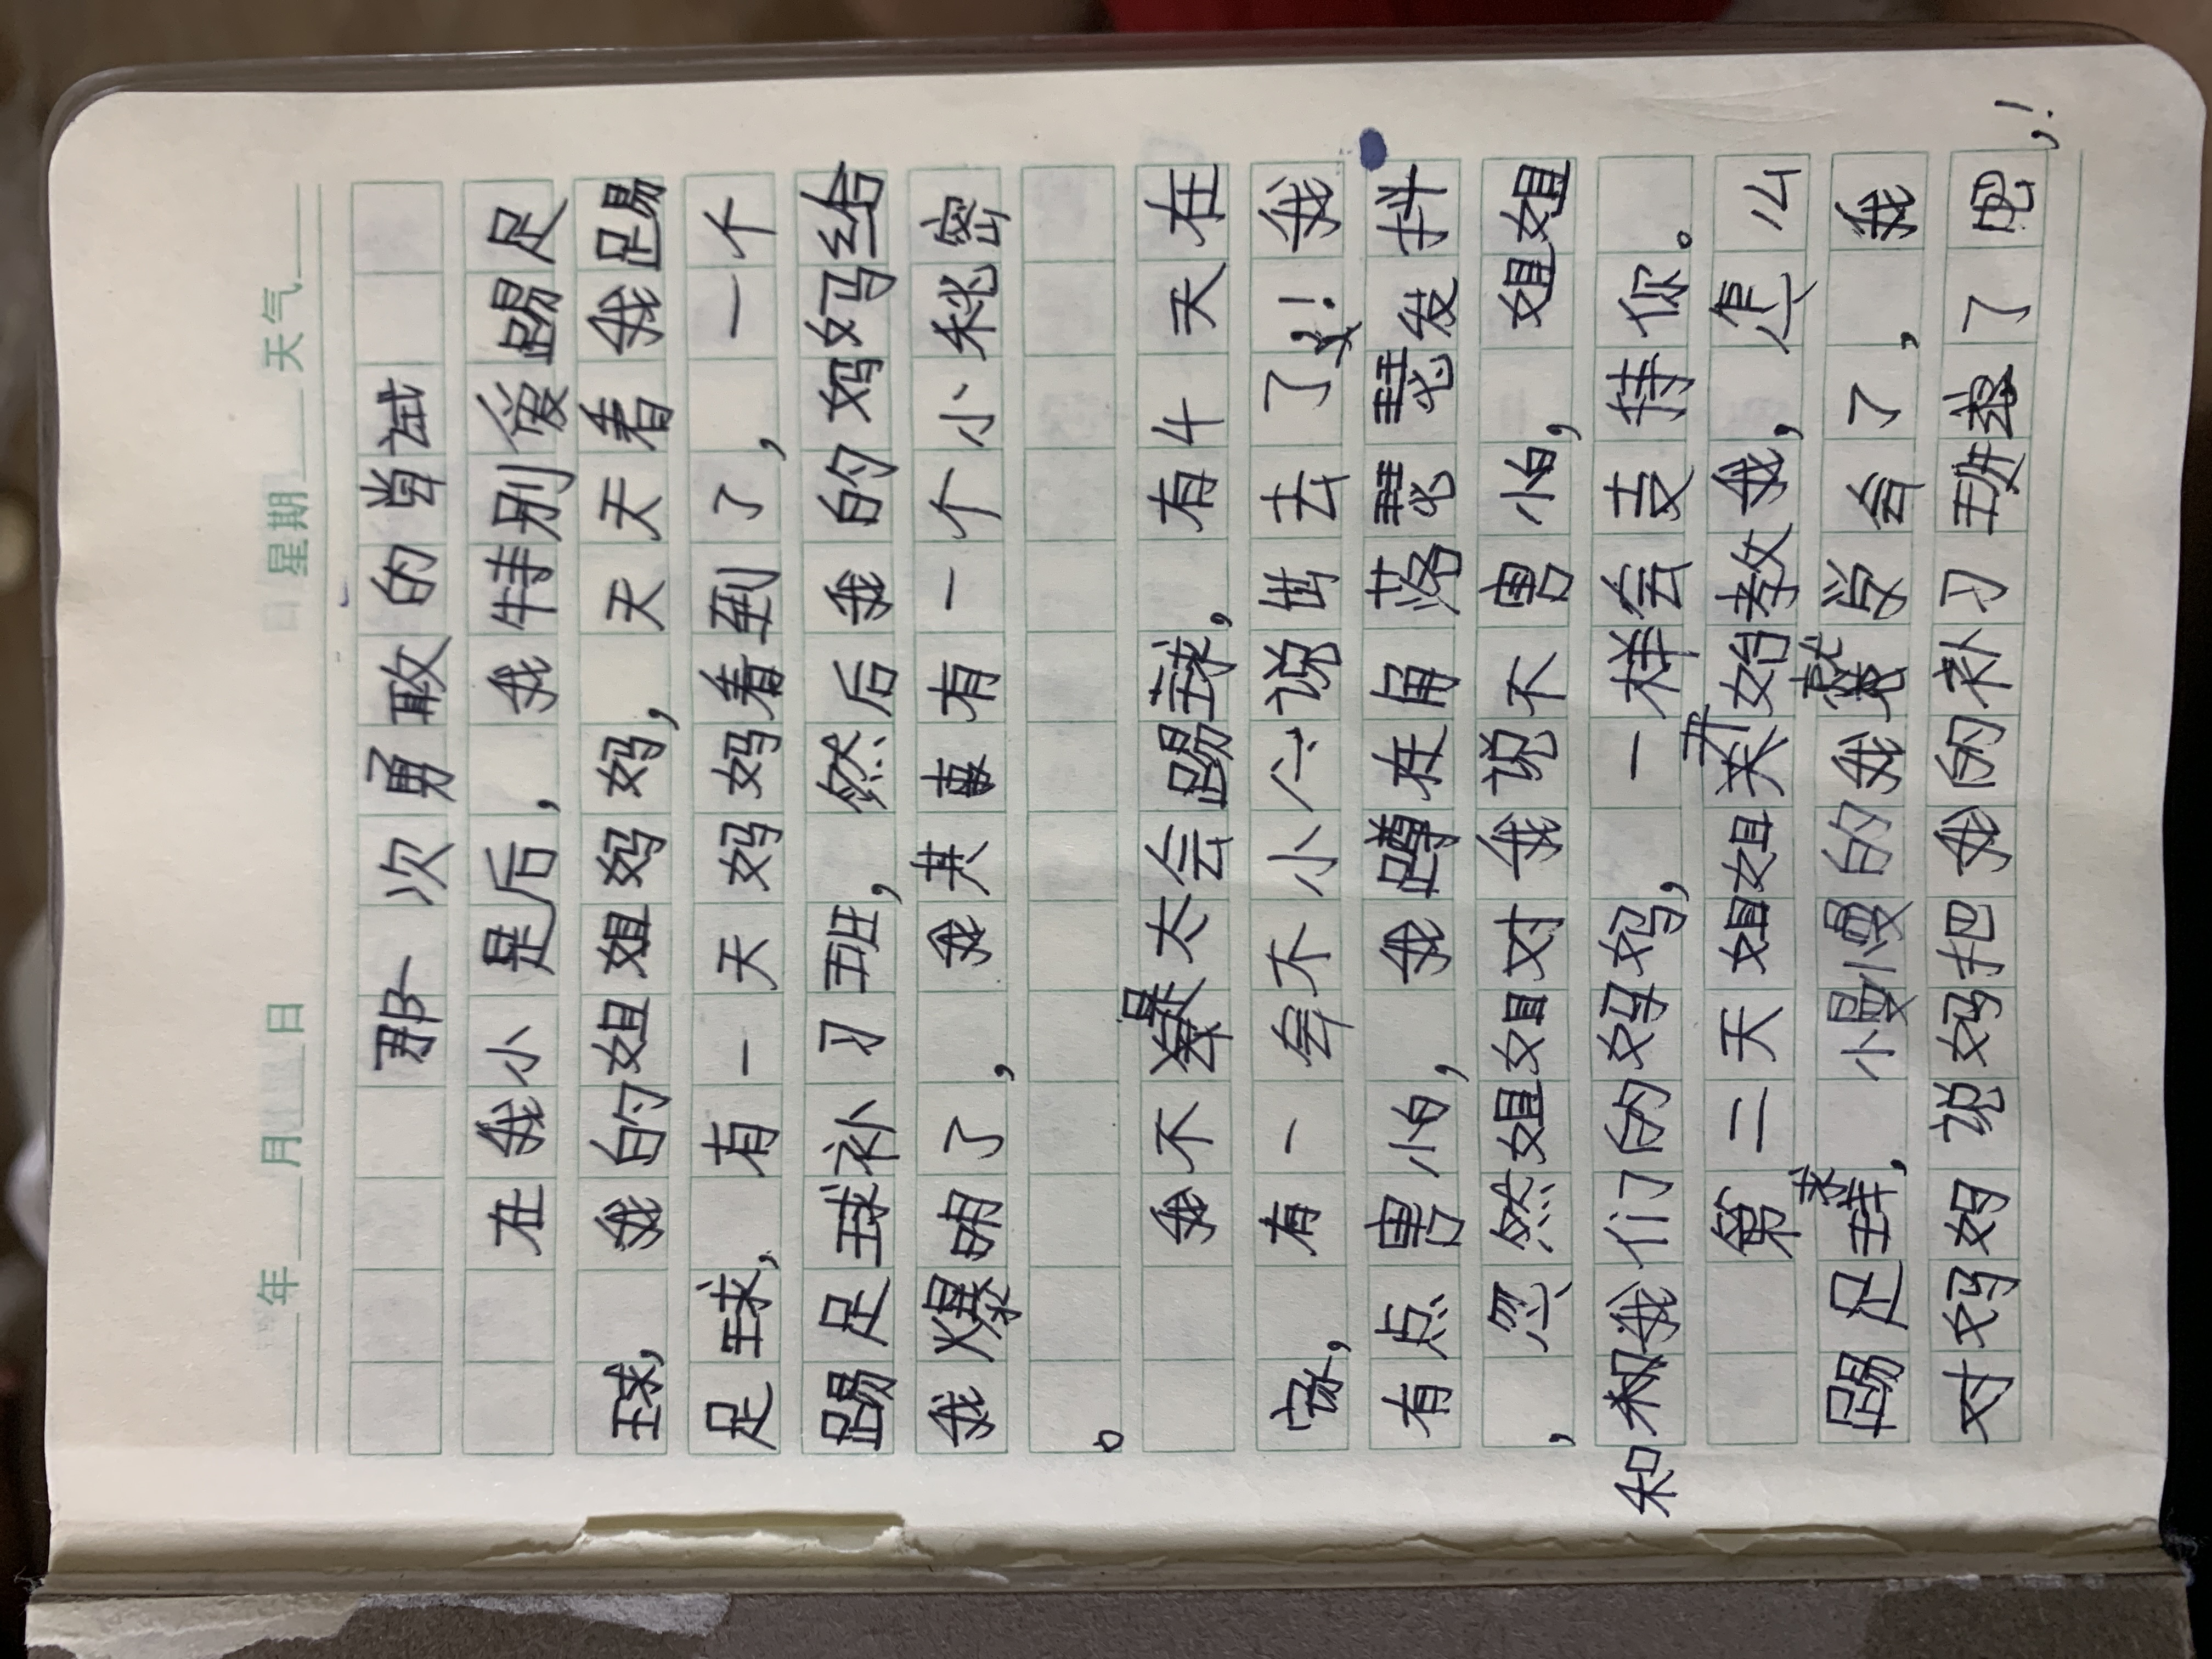 年 月 日 星期 天气
那一次勇敢的尝试
在我小是后，我特别爱踢足
球，我的姐姐妈妈，天天看我踢
足球，有一天妈妈看到了，一个
踢足球补习班，然后我的妈妈给
我爆明了，我其事有一个小秘密
。
我不太会踢球，有4天在
家，有一不小心说出去了！我
有点害怕，我蹲在角落瑟瑟发抖
，忽然姐姐对我说不害怕，姐姐
和我们的妈妈，一样会支持你。
第二天姐姐开始教我，怎么
踢足球，慢慢的我就学会了，我
对妈妈说妈把我的补习班退了吧！